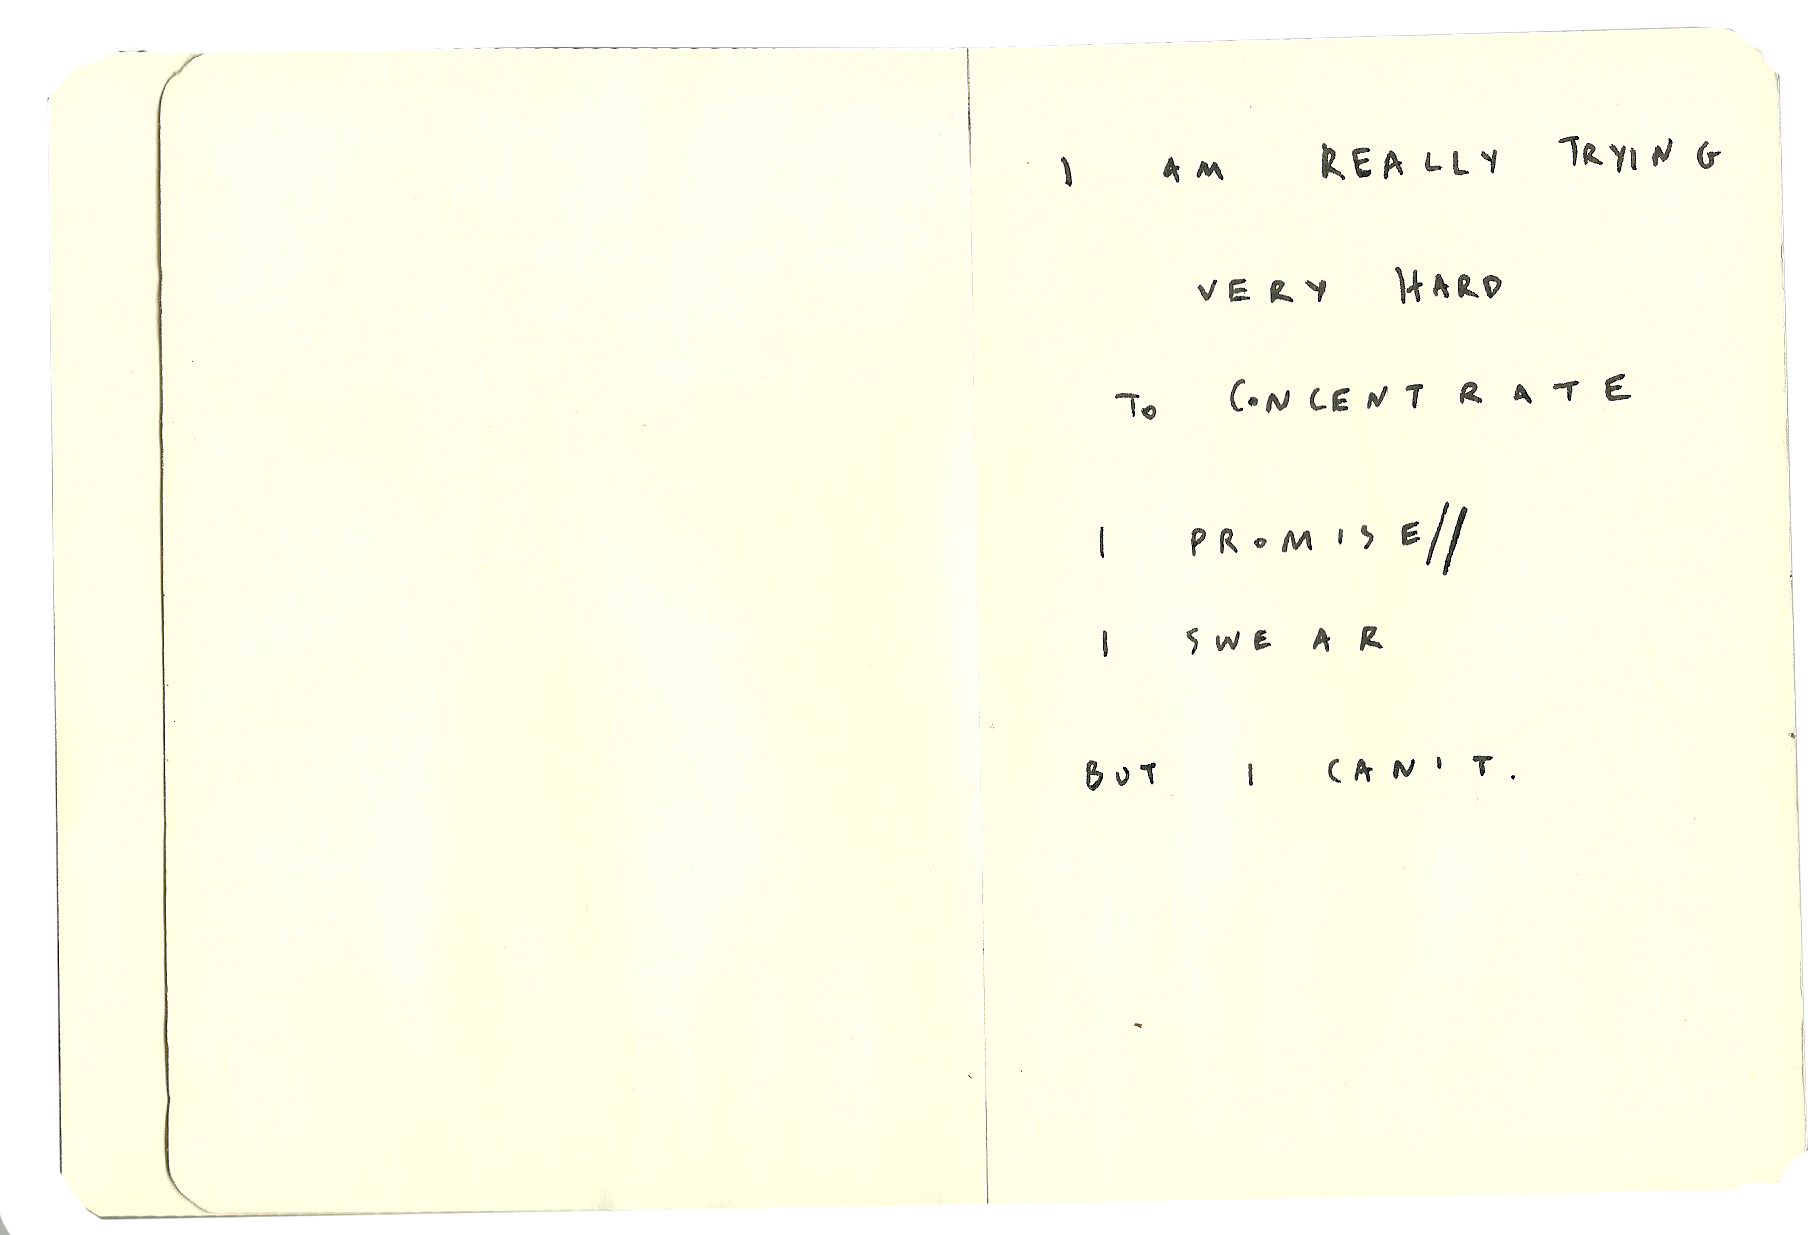 I AM REALLY TRYING
VERY HARD
TO CONCENTRATE
I PROMISE//
I SWEAR
BUT I CAN'T.